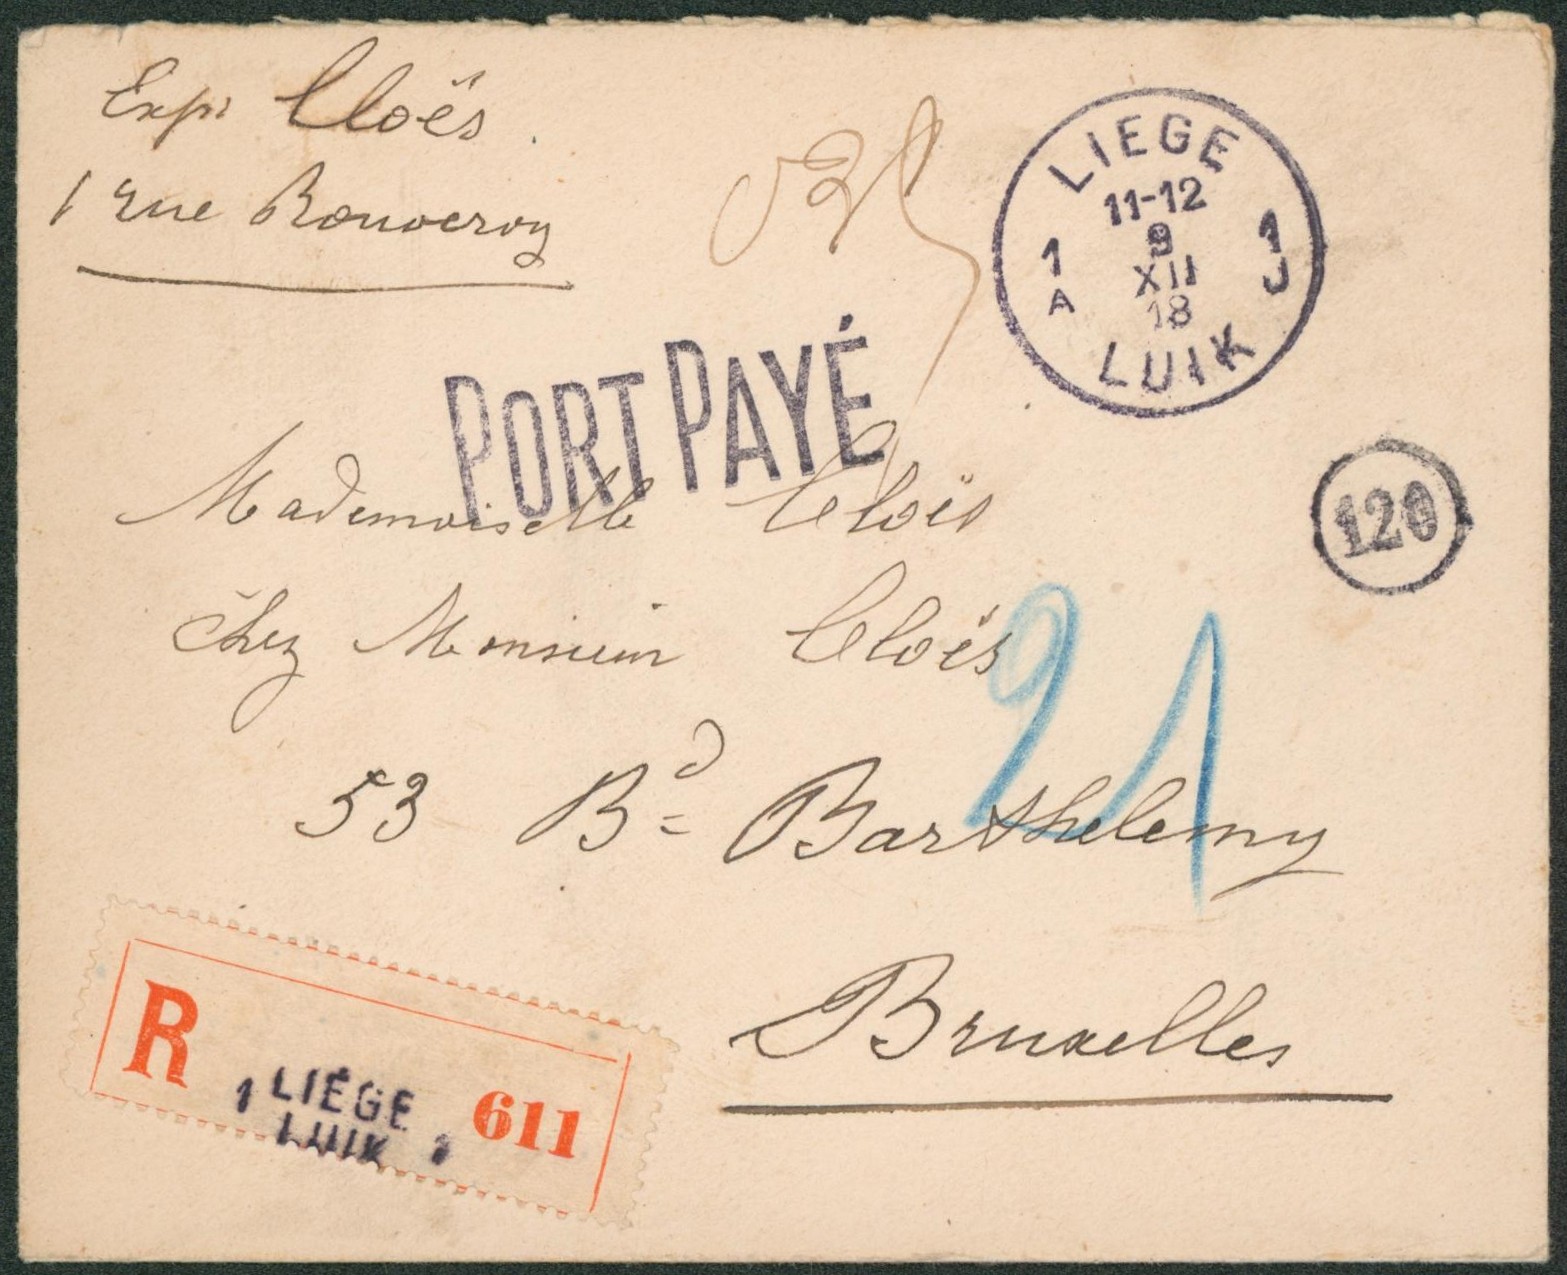 Expr Cloës
1 rue Rouveroy
LIEGE
11-12
9
XII
18
1 A
1 J
LUIK
PORT PAYÉ
120
Mademoiselle Cloës
Chez Monsieur Cloës
21
53 Bd Barthelemy
Bruxelles
R
1 LIÉGE 1
LUIK
611